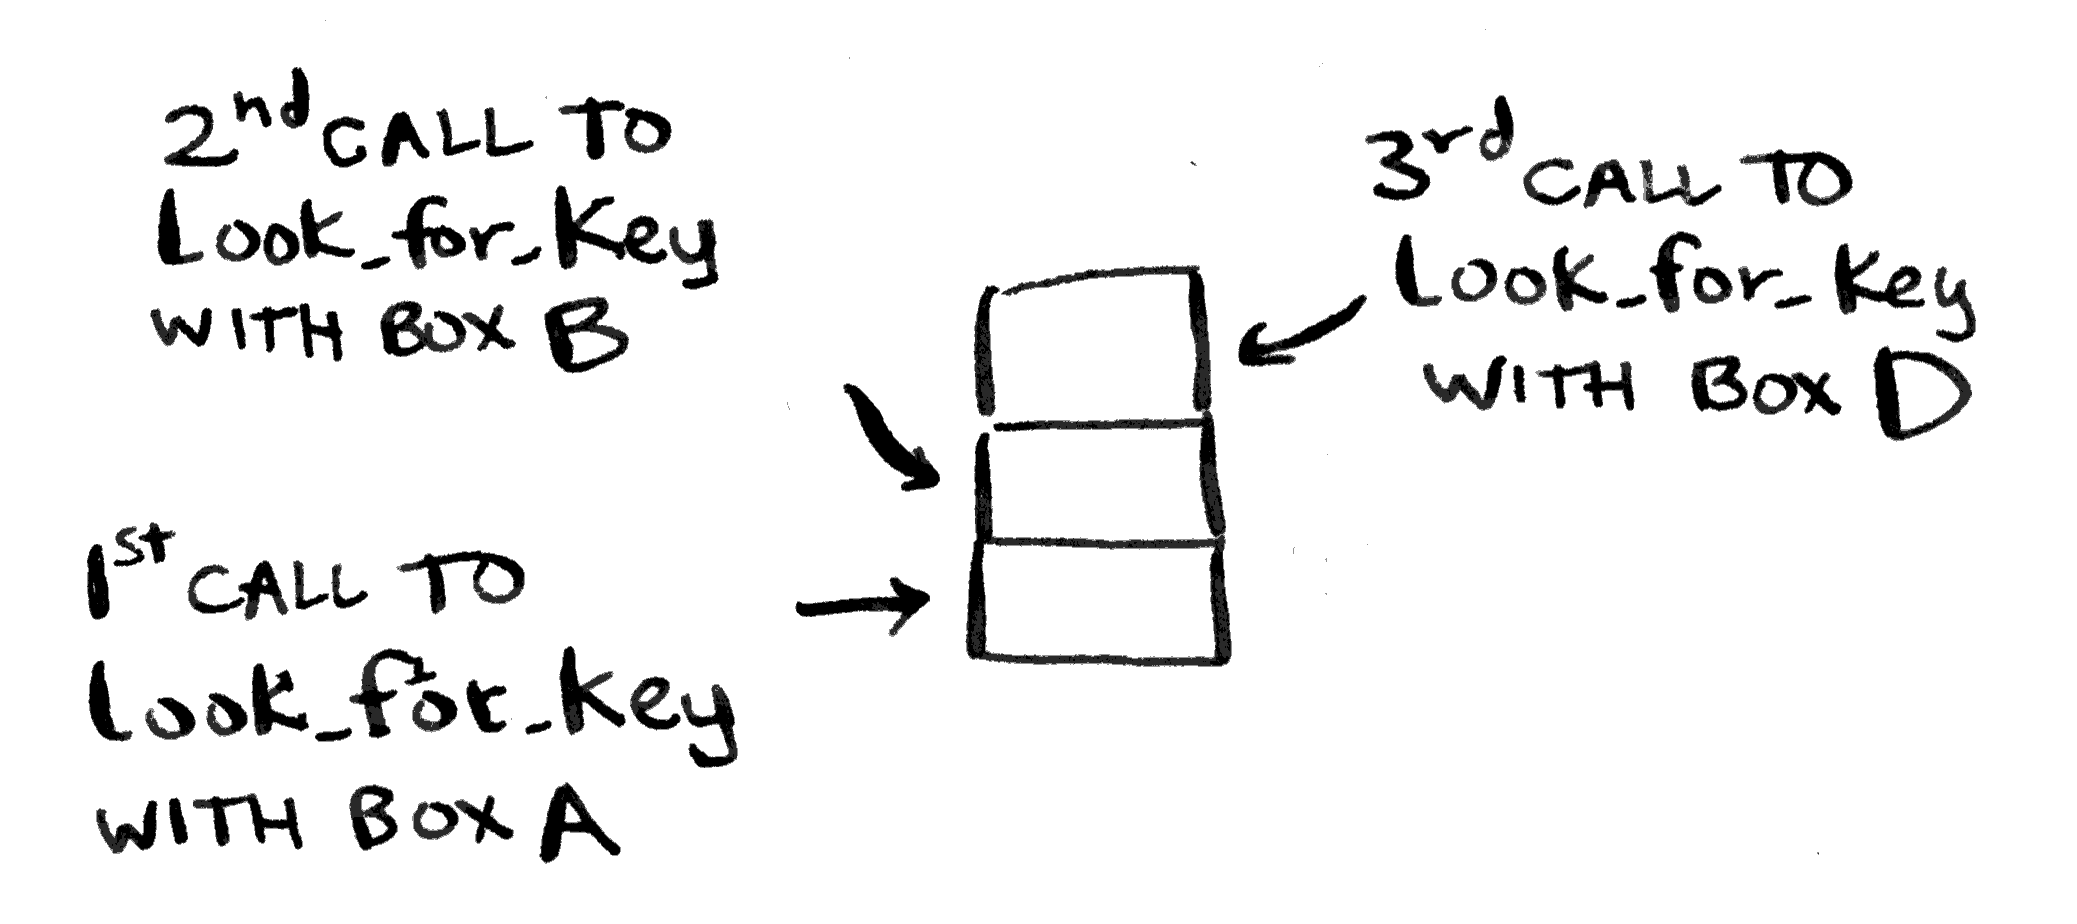 2nd CALL TO
Look_for_Key
WITH BOX B
3rd CALL TO
Look_for_Key
WITH BOX D
1st CALL TO
Look_for_Key
WITH BOX A